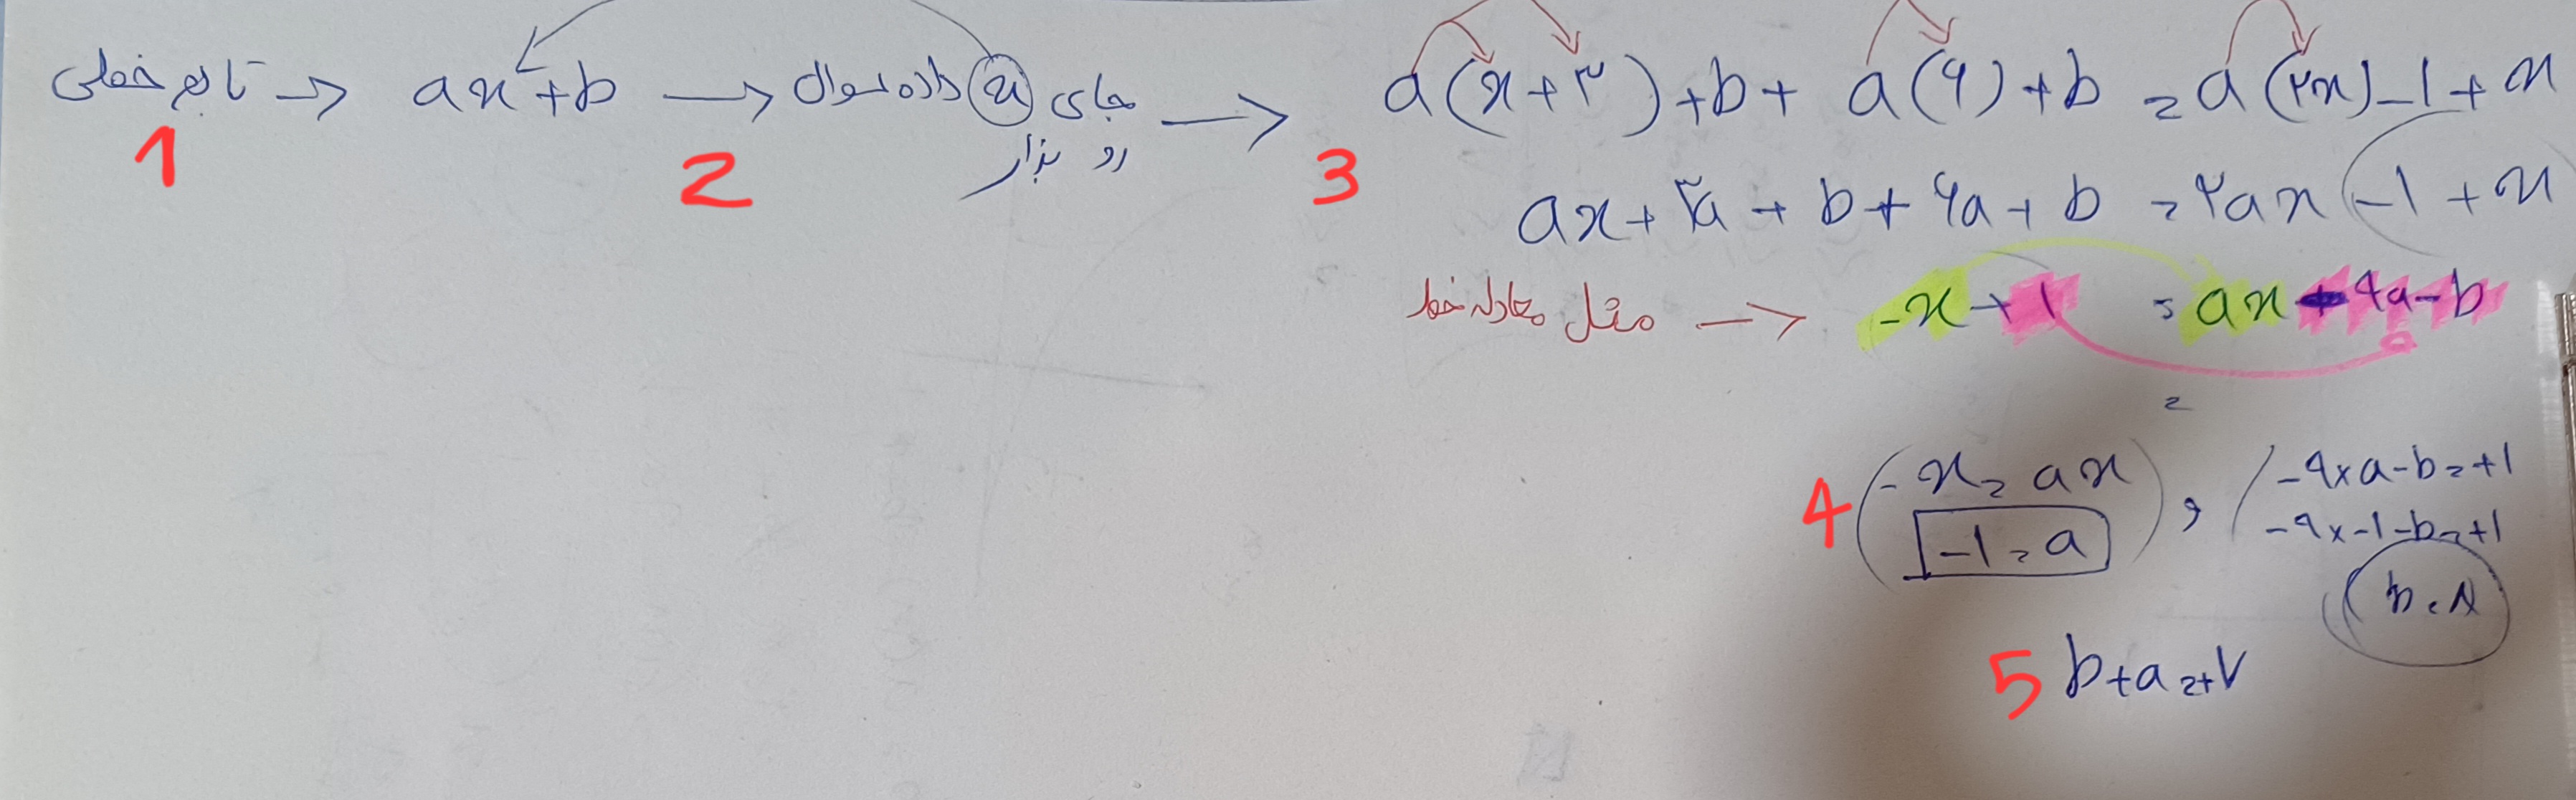 تابع خطی → ax+b → جای x داده سوال رو بزار → a(x+۳)+b+a(۶)+b=a(۲x)-1+x
1 2 3
ax+۳a+b+۶a+b=۲ax-1+x
مثل معادله خط → -x+1=ax-۹a-b
=
4 (-x=ax), -۹×a-b=+1
-1=a -۹×-1-b=+1
b=۸
5 b+a=+۷